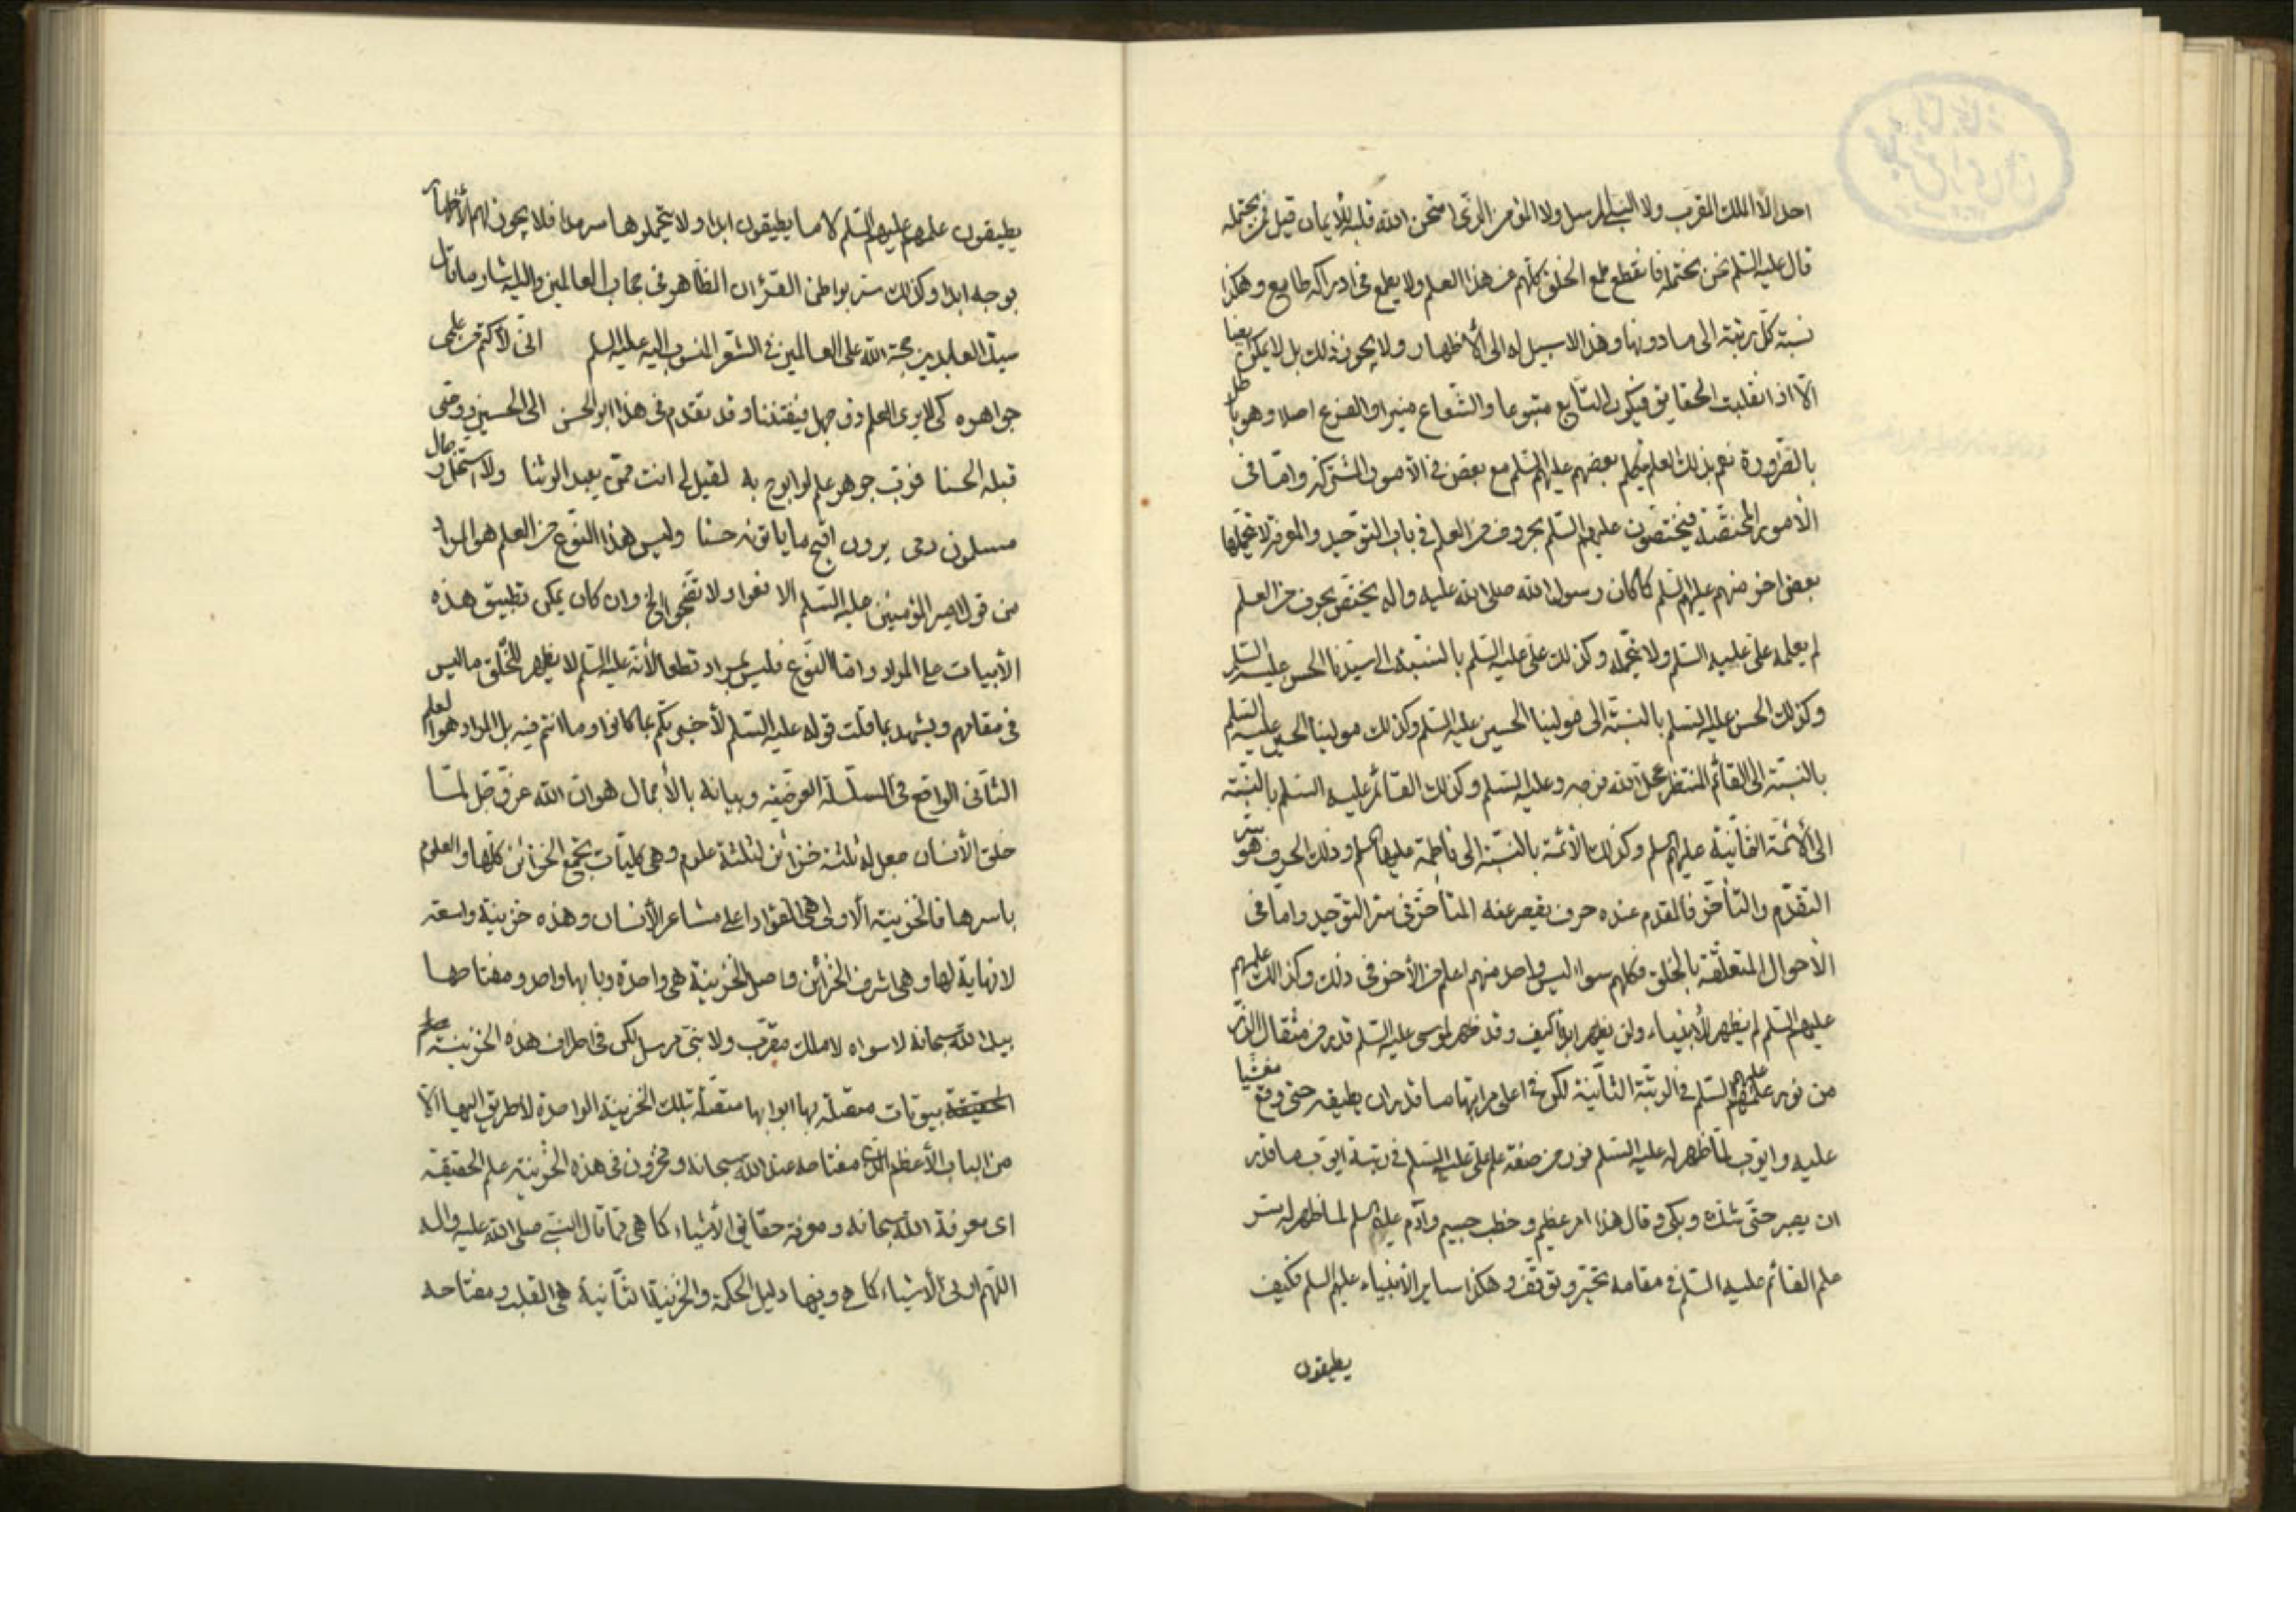 احد الّا الملك المقرّب ولا النبي المرسل ولا المؤمن الذي امتحن الله قلبه للايمان قيل فمن يحتمله
قال عليه السّلم نحن نحتمله فانقطع طمع الخلق كلّهم عن هذا العلم ولا يطمع في ادراكه طامع وهكذا
نسبة كلّ رتبة الى ما دونها وهذا لا سبيل له الى الأظهار ولا يجوز ذلك بل لا يمكن
الّا اذا انقلبت الحقايق فيكون التّابع متبوعا والشّعاع منيرا والفرع اصلا وهو باطل
بالضّرورة نعم بذلك العلم بعضهم عليهم السّلم مع بعض في الأمور المشتركة وامّا في
الأمور المختصّة فيختصّون عليهم السّلم بحروف من العلم في باب التوّحيد والمعرفة لا يتحمّلها
بعض اخر منهم عليهم السّلم كما كان رسول الله صلى الله عليه واله يختصّ بحرف من العلم
لم يعلمه علىّ عليه السّلم ولا يتحمّله وكذلك علىّ عليه السّلم بالنسّبة الى سيّدنا الحسن عليه السّلم
وكذلك الحسن عليه السّلم بالنسبّة الى مولينا الحسين عليه السّلم وكذلك مولينا الحسين عليه السّلم
بالنسبّة الى القائم المنتظر عجّل الله فرجه وعليه السّلم وكذلك القائم عليه السّلم بالنسّبة
الى الأئمّة الثّمانية عليهم السلم وكذلك الأئمّة بالنسّبة الى فاطمة عليها السلم وذلك الحرف هو سرّ
التّقدّم والتّأخّر فالمقدم عنده حرف يقصر عنه المتأخّر في سرّ التوّحيد وامّا في
الأحوال المتعلّقة بالخلق فكلهم سواء ليس واحد منهم اعلم من الأخر في ذلك وكذلك علمهم
عليهم السّلم لم يظهر للأنبياء ولن يظهر ابدا كيف وقد ظهر لموسى عليه السّلم قدر من مثقال الذّر
من نور علمهم عليهم السّلم في الرتبّة الثّانية لكونه في اعلى مراتبها ما قدر ان يطيقه حتى وقع مغشيا
عليه وايّوب لمّا ظهر له عليه السّلم نور من صفة علم علىّ عليه السّلم في رتبة ايّوب ما قدر
ان يصبر حتّى شكّ وبكى وقال هذا امر عظيم وخطب جسيم وآدم عليه السلم لما ظهر له سرّ
علم القائم عليه السّلم في مقامه تحيّر وتوقّف وهكذا ساير الأنبياء عليهم السلم فكيف
يطيقون
يطيقون علمهم عليهم السّلم لا ما يطيقون ابدا ولا يتحملوها سرمدا فلا يجوز لهم الأظهار
بوجه ابدا وكذلك سرّ بواطن القرءان الظّاهر في حجاب العالمين واليه اشار ما قال
سيّد العابدين حجّة الله على العالمين في الشّعر المنسوب اليه عليه السلم انّى لأكتم من علمى
جواهره كى لا يرى العلم ذو جهل فيفتننا وقد تقدم في هذا ابو الحسن الى الحسين ووصّى
قبله الحسنا فربّ جوهر علم لو ابوح به لقيل لى انت ممّن يعبد الوثنا ولاستحلّ رجال
مسلمون دمى يرون اقبح ما ياتونه حسنا وليس هذا النّوع من العلم هو المراد
من قول امير المؤمنين عليه السّلم الا فعوا ولا تضجّوا الخ وان كان يمكن تطبيق هذه
الأبيات على المراد وامّا النّوع فليس بمراد قطعا لأنّه عليه السّلم لا يظهر للخلق ما ليس
في مقامهم ويشهد بما قلت قوله عليه السّلم لأخبرنكم بما كانوا وما انتم فيه بل المراد هو العلم
الثّانى الواقع في السلسلة العرضيّة وبيانه بالأجمال هو ان الله عزّ وجلّ لمّا
خلق الأنسان جعل له ثلثة خزائن لثلثة علوم وهى كليّات تجمع الخزائن كلّها والعلوم
باسرها فالخزينة الأولى هى الفؤاد اعلى مشاعر الأنسان وهذه خزينة واسعة
لا نهاية لها وهى اشرف الخزائن واصل الخزينة هى واحدة وبابها واحد ومفتاحها
بيد الله سبحانه لا سواه لا ملك مقرّب ولا نبى مرسل لكن في اطراف هذه الخزينة
بيوتات متصلة بها ابوابها متصّلة بتلك الخزينة الواحدة لا طريق اليها الّا
من الباب الأعظم الّذى مفتاحه عند الله سبحانه ومخزون في هذه الخزينة علم الحقيقة
اى معرفة الله سبحانه ومعرفة حقايق الأشياء كما هى قال النبىّ صلى الله عليه واله
اللّهم ارنى الأشياء كما هى وفيها دليل الحكمة والخزينة الثّانية هى القلب ومفتاحه